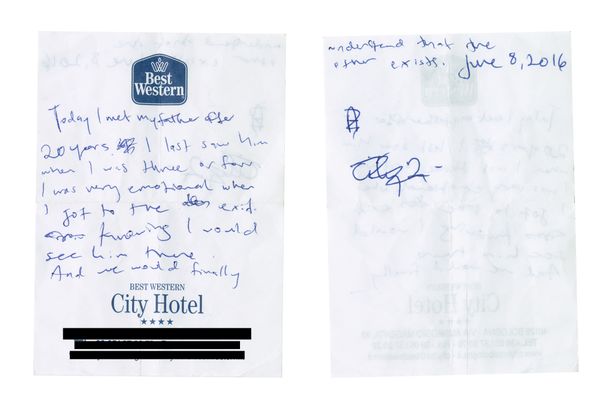 Best
Western
Today I met my father after
20 years. I last saw him
when I was three or four
I was very emotional when
I got to the exit.
knowing I would
see him there.
And we would finally
BEST WESTERN
City Hotel
★★★★
understand that the
other exists. June 8, 2016